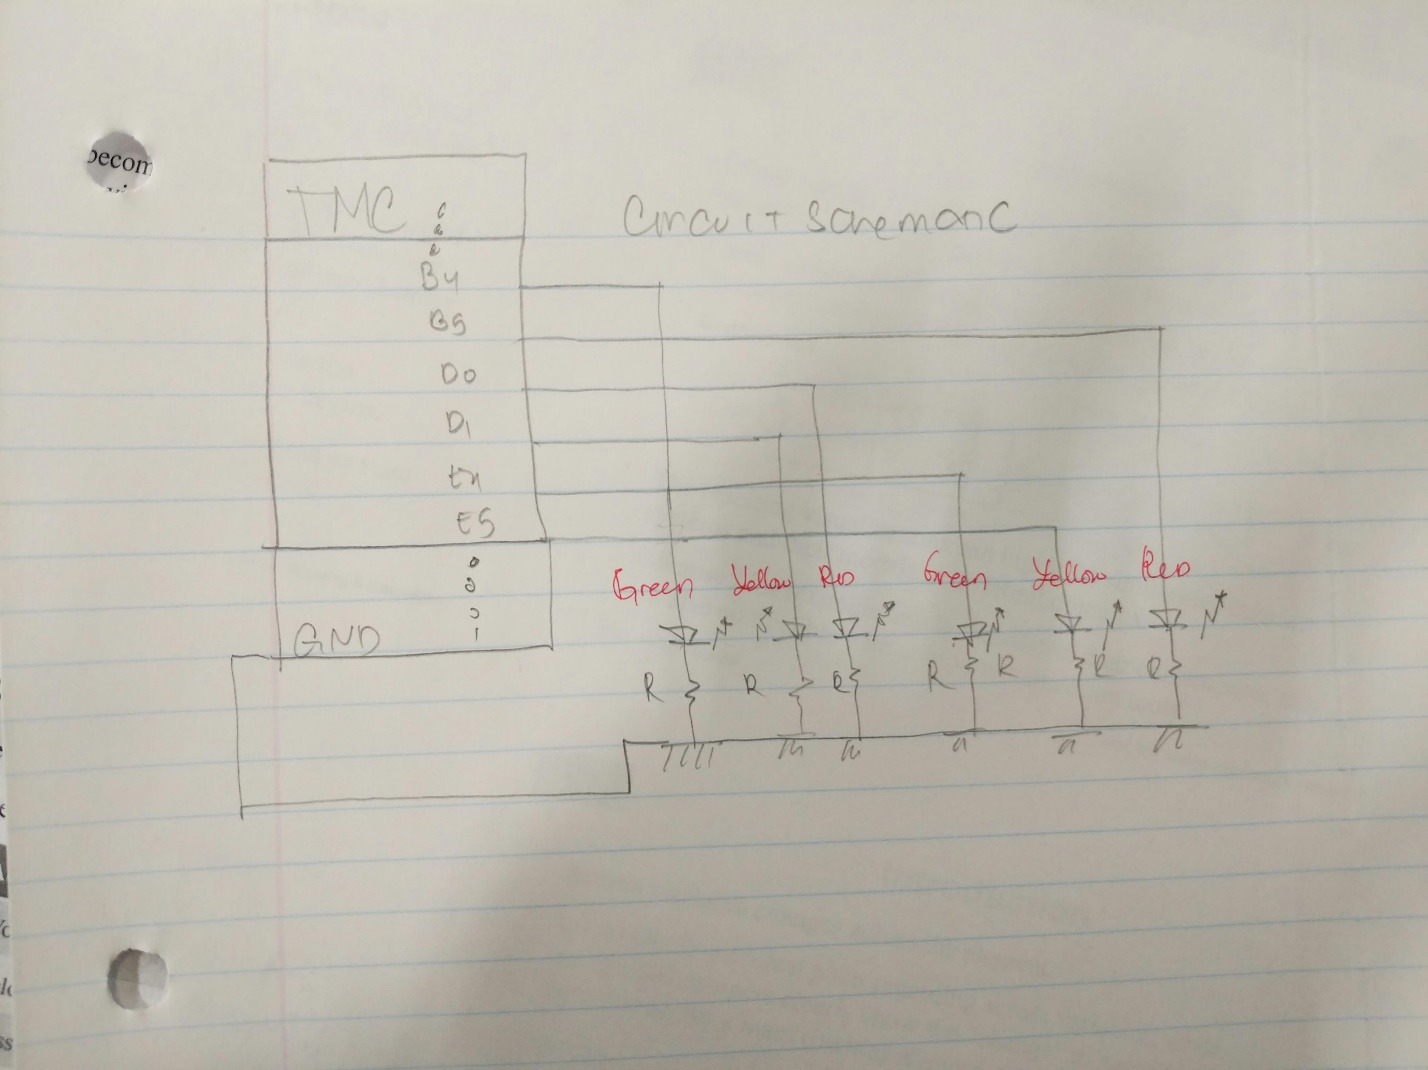 becom
TMC
Circuit Schematic
B4
B5
D0
D1
E4
E5
Green Yellow Red Green Yellow Red
R R R R R R R
GND